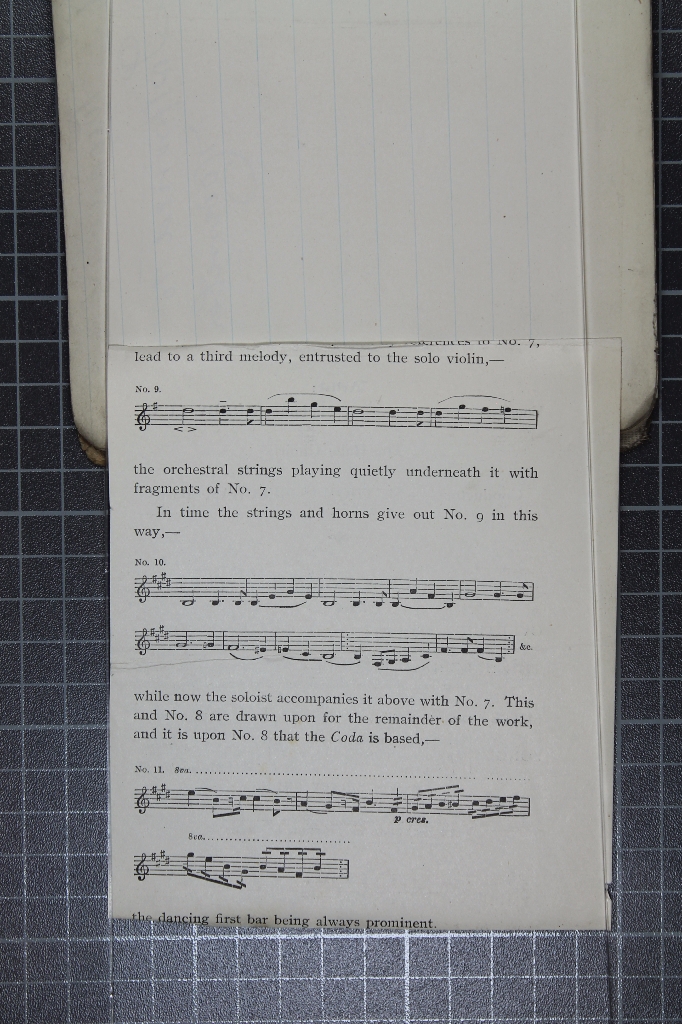 references to No. 7,
lead to a third melody, entrusted to the solo violin,—
No. 9.
< >
the orchestral strings playing quietly underneath it with
fragments of No. 7.
In time the strings and horns give out No. 9 in this
way,—
No. 10.
&c.
while now the soloist accompanies it above with No. 7. This
and No. 8 are drawn upon for the remainder of the work,
and it is upon No. 8 that the Coda is based,—
No. 11. 8va.
p cres.
8va.
the dancing first bar being always prominent.